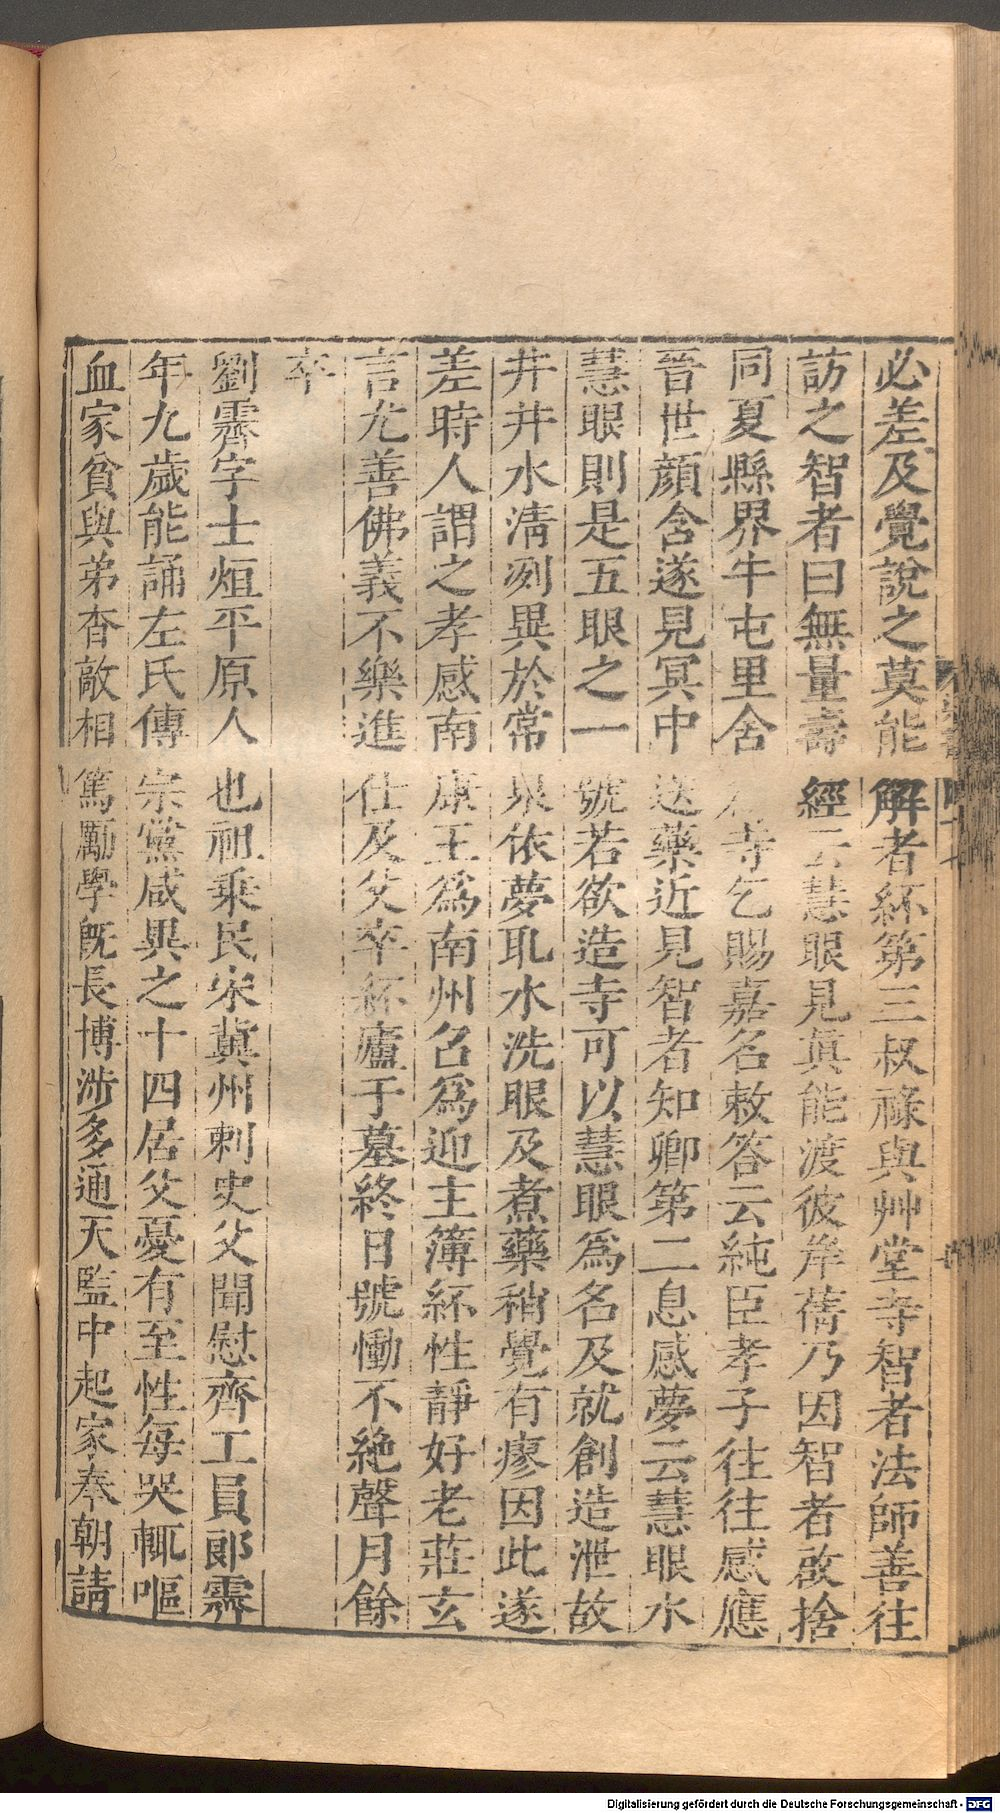 必差及覺說之莫能解者紑第三叔祿與艸堂寺智者法師善往
訪之智者曰無量壽經云慧眼見眞能渡彼岸蒨乃因智者啟捨
同夏縣界牛屯里舍爲寺乞賜嘉名敕答云純臣孝子往往感應
晉世顔含遂見冥中送藥近見智者知卿第二息感夢云慧眼水
慧眼則是五眼之一號若欲造寺可以慧眼爲名及就創造泄故
井井水淸冽異於常泉依夢取水洗眼及煮藥稍覺有瘳因此遂
差時人謂之孝感南康王爲南州召爲迎主簿紑性靜好老莊玄
言尤善佛義不樂進仕及父卒紑廬于墓終日號慟不絶聲月餘
卒
劉霽字士烜平原人也祖乗民宋冀州刺史父聞慰齊工員郞霽
年九歲能誦左氏傳宗黨咸異之十四居父憂有至性每哭輒嘔
血家貧與弟杳敵相篤勵學旣長博涉多通天監中起家奉朝請
Digitalisierung gefördert durch die Deutsche Forschungsgemeinschaft - DFG